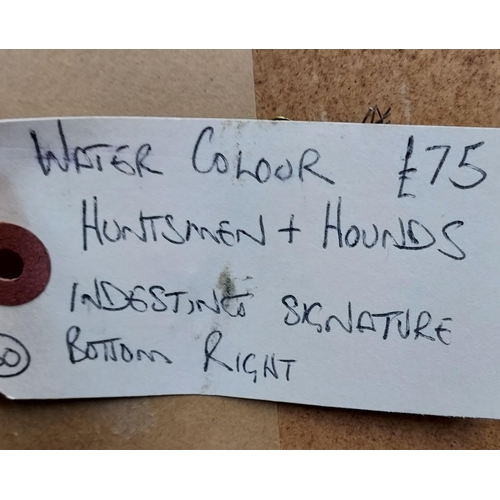 WATER COLOUR £75
HUNTSMEN + HOUNDS
INDESTINCT SIGNATURE
BOTTOM RIGHT